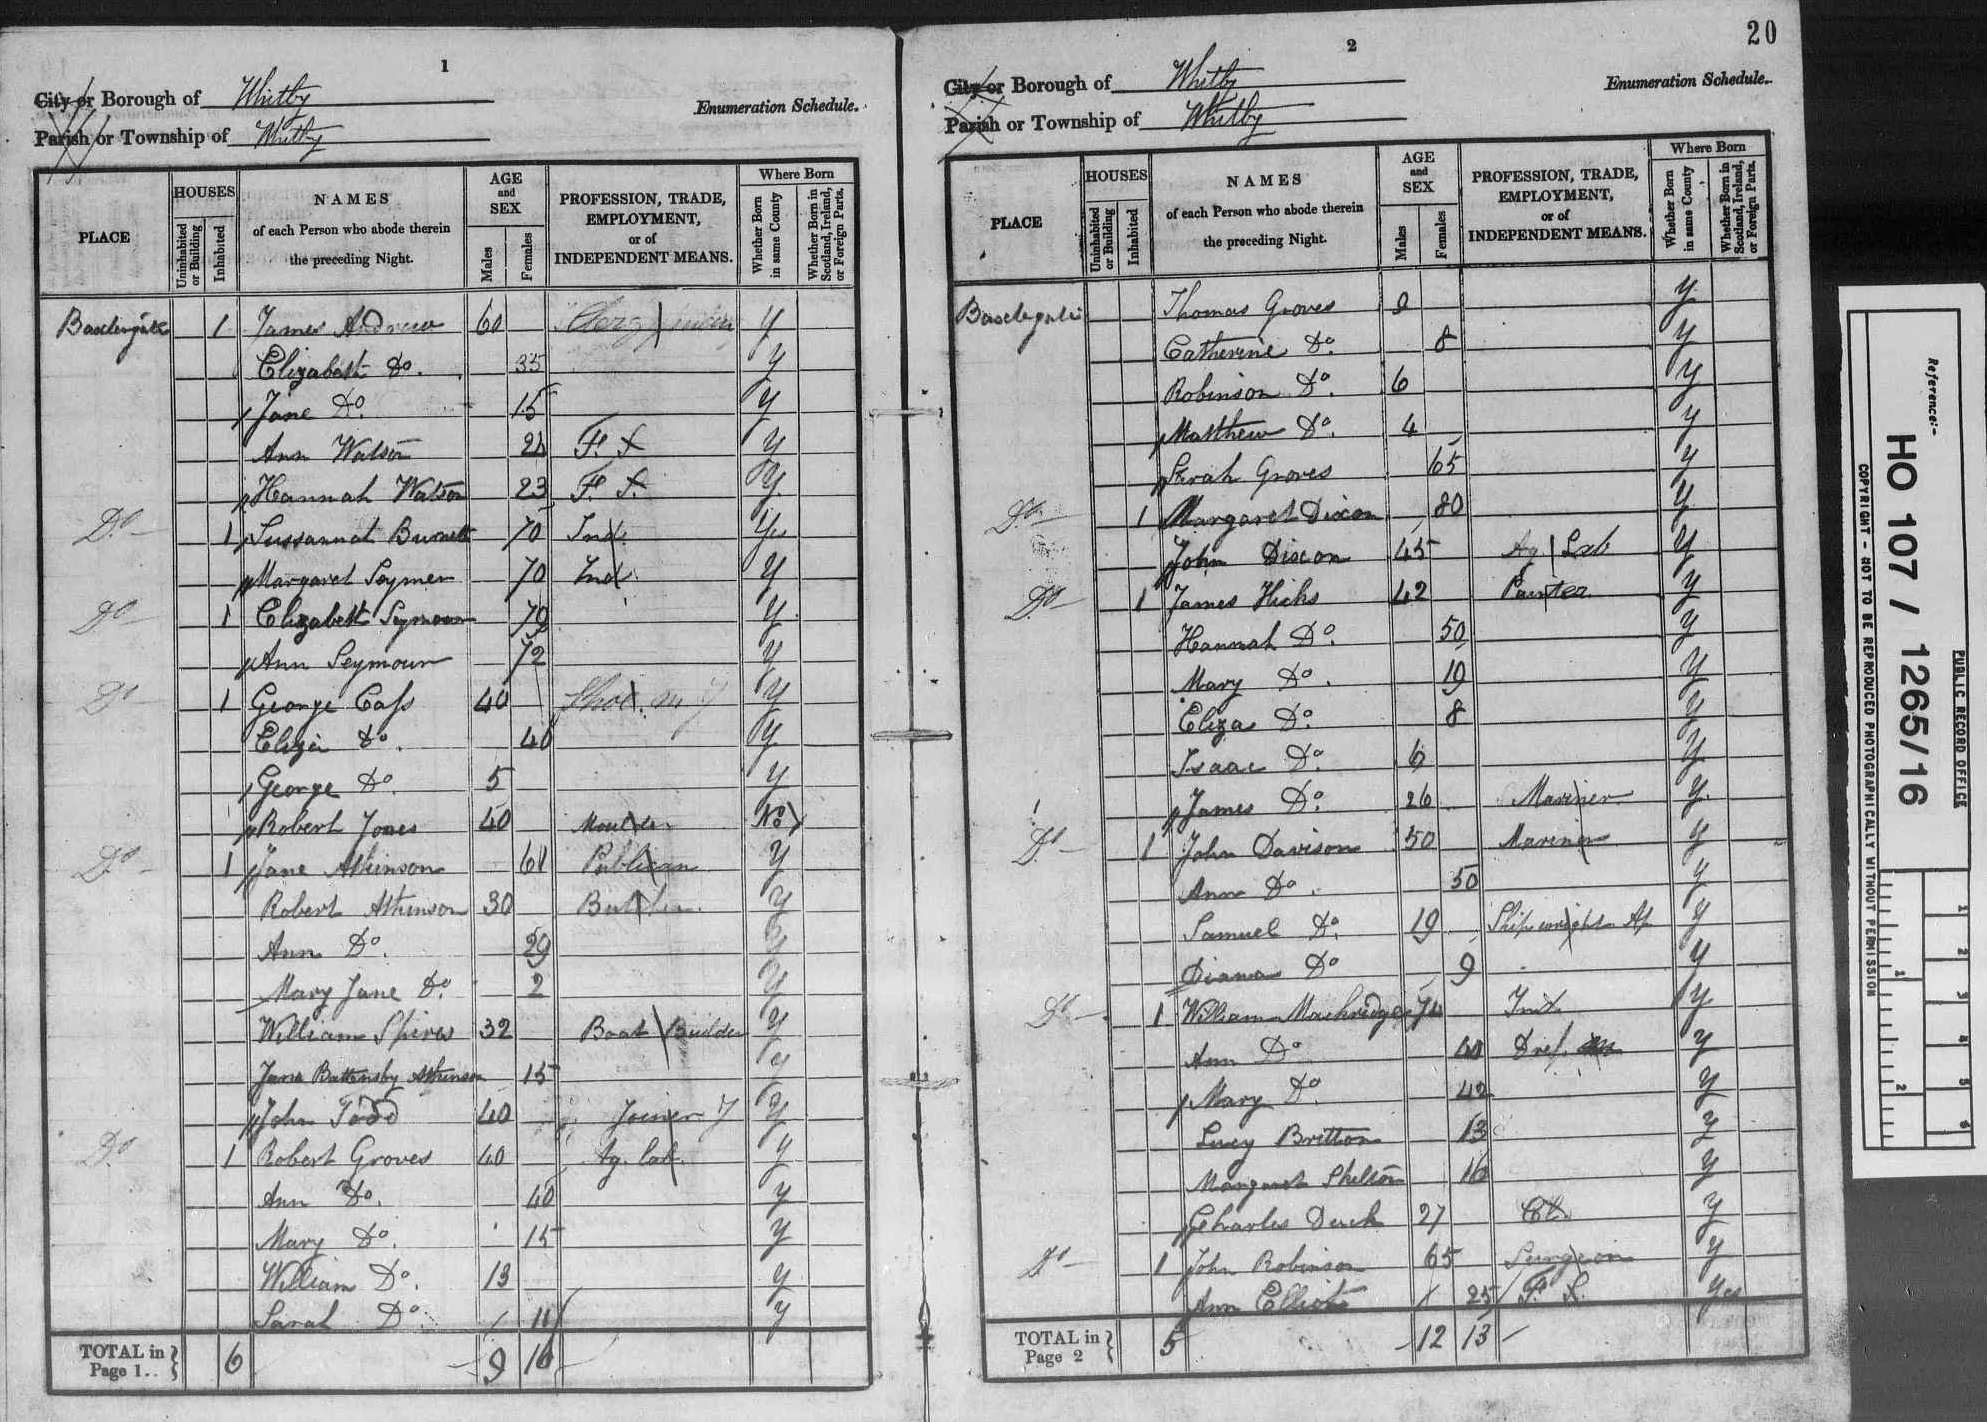 1
City or Borough of Whitby
Enumeration Schedule.
Parish or Township of Whitby
PLACE
HOUSES
Uninhabited or Building
Inhabited
NAMES
of each Person who abode therein
the preceding Night.
AGE and SEX
Males
Females
PROFESSION, TRADE, EMPLOYMENT, or of INDEPENDENT MEANS.
Where Born
Whether Born in same County
Whether Born in Scotland, Ireland, or Foreign Parts.
Baxtergate 1 James Andrew 60 Y
Elizabeth Do. 35 Y
Jane Do. 15 Y
Ann Watson 24 F. S. Y
Hannah Watson 23 F. S. Y
Do 1 Sussannah Burnett 70 Ind. Y
Margaret Seymer 70 Ind. Y
Do 1 Elizabeth Seymour 70 Y
Ann Seymour 72 Y
Do 1 George Cass 40 Shoe. m. J Y
Eliza Do. 40 Y
George Do. 5 Y
Robert Jones 40 Moulder No
Do 1 Jane Atkinson 61 Publican Y
Robert Atkinson 30 Butler Y
Ann Do. 29 Y
Mary Jane Do. 2 Y
William Spires 32 Boat Builder Y
Jane Battensby Atkinson 15 Y
John Todd 40 Joiner J Y
Do 1 Robert Groves 40 Ag. Lab. Y
Ann Do. 40 Y
Mary Do. 15 Y
William Do. 13 Y
Sarah Do. 11 Y
TOTAL in Page 1.. 6 9 16
2
20
City or Borough of Whitby
Enumeration Schedule.
Parish or Township of Whitby
PLACE
HOUSES
Uninhabited or Building
Inhabited
NAMES
of each Person who abode therein
the preceding Night.
AGE and SEX
Males
Females
PROFESSION, TRADE, EMPLOYMENT, or of INDEPENDENT MEANS.
Where Born
Whether Born in same County
Whether Born in Scotland, Ireland, or Foreign Parts.
Baxtergate Thomas Groves 9 Y
Catherine Do. 8 Y
Robinson Do. 6 Y
Matthew Do. 4 Y
Sarah Groves 65 Y
Do 1 Margaret Dixon 80 Y
John Dixon 45 Ag Lab Y
Do 1 James Hicks 42 Painter Y
Hannah Do. 50 Y
Mary Do. 19 Y
Eliza Do. 8 Y
Isaac Do. 6 Y
James Do. 26 Mariner Y
Do 1 John Davison 50 Mariner Y
Ann Do. 50 Y
Samuel Do. 19 Shipwright Ap Y
Diana Do 9 Y
Do 1 William 74 Ind Y
Ann Do 40 Y
Mary Do. 42 Y
Lucy Britton 13 Y
Margaret Shelton 16 Y
Charles 27 Y
Do 1 John Robinson 65 Surgeon Y
Ann Elliot 25 F. S. Yes
TOTAL in Page 2 5 12 13
Reference:-
HO 107 / 1265/16
PUBLIC RECORD OFFICE
COPYRIGHT - NOT TO BE REPRODUCED PHOTOGRAPHICALLY WITHOUT PERMISSION
1
2
1
2
3
4
5
6